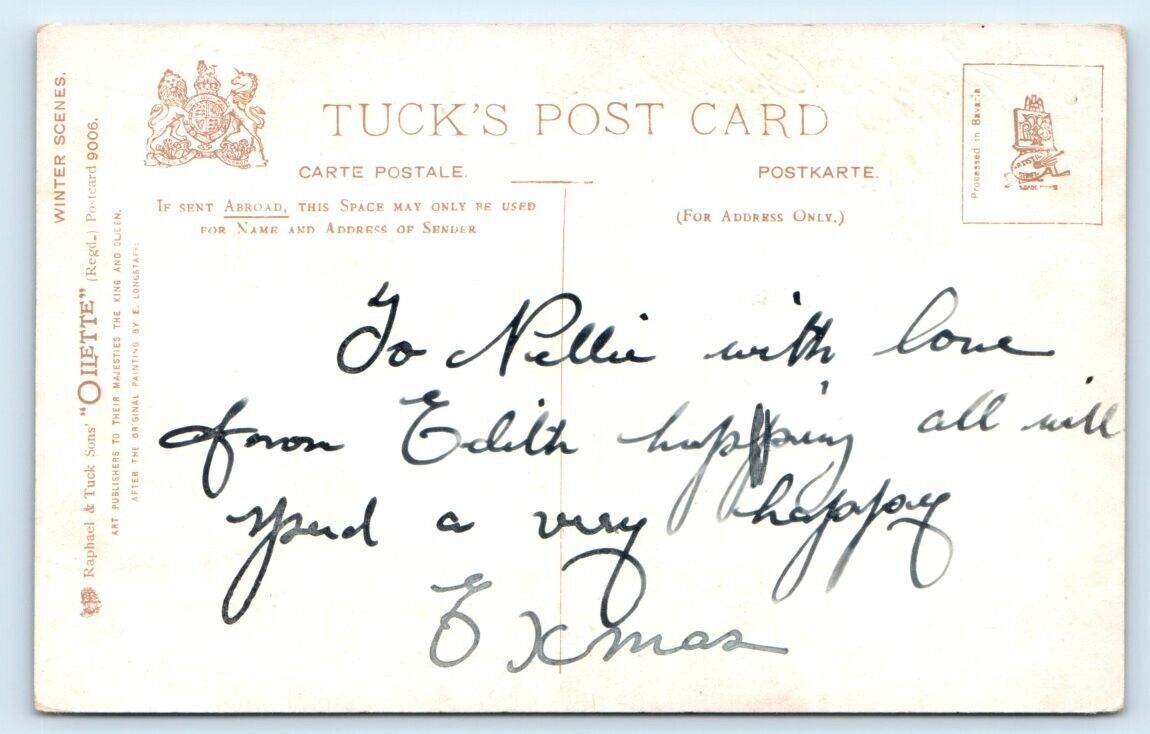 WINTER SCENES.
Raphael & Tuck Sons' "OILETTE" (Regd.) Postcard 9006.
ART PUBLISHERS TO THEIR MAJESTIES THE KING AND QUEEN.
AFTER THE ORIGINAL PAINTING BY E. LONGSTAFF.
TUCK'S POST CARD
CARTE POSTALE.
POSTKARTE.
IF SENT ABROAD, THIS SPACE MAY ONLY BE USED
FOR NAME AND ADDRESS OF SENDER
(FOR ADDRESS ONLY.)
Processed in Bavaria
To Nellie with love
from Edith hopping all will
spend a very happy
E Xmas